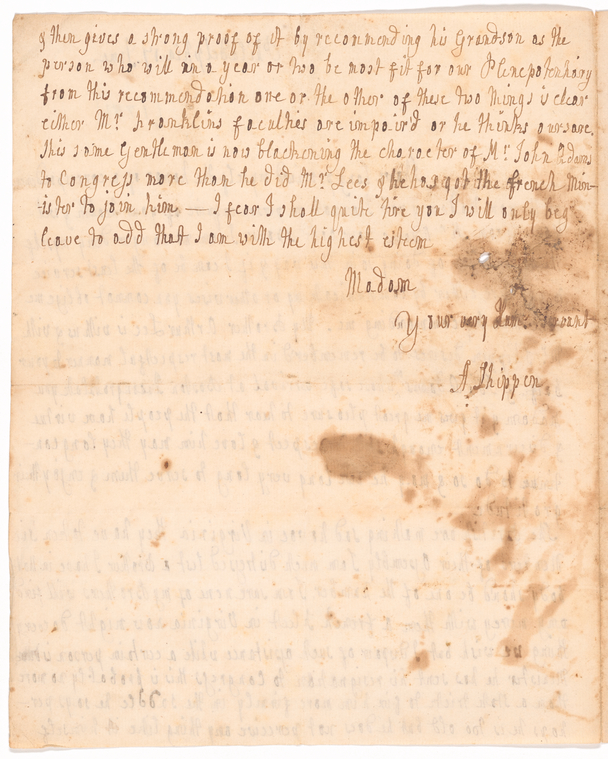 & then gives a strong proof of it by recommending his Grandson as the
person who will in a year or two be most fit for our Plenepotenhiary
from this recommendation one or the other of these two things is clear
either Mr. Franklins faculties are impaird or he thinks ours are.
This same Gentleman is now blackening the character of Mr. John Adams
to Congress more than he did Mr. Lees & he has got the french Min-
ister to join him — I fear I shall quite tire you I will only beg
leave to add that I am with the highest esteem
Madam
Your very Servant
A Shippen